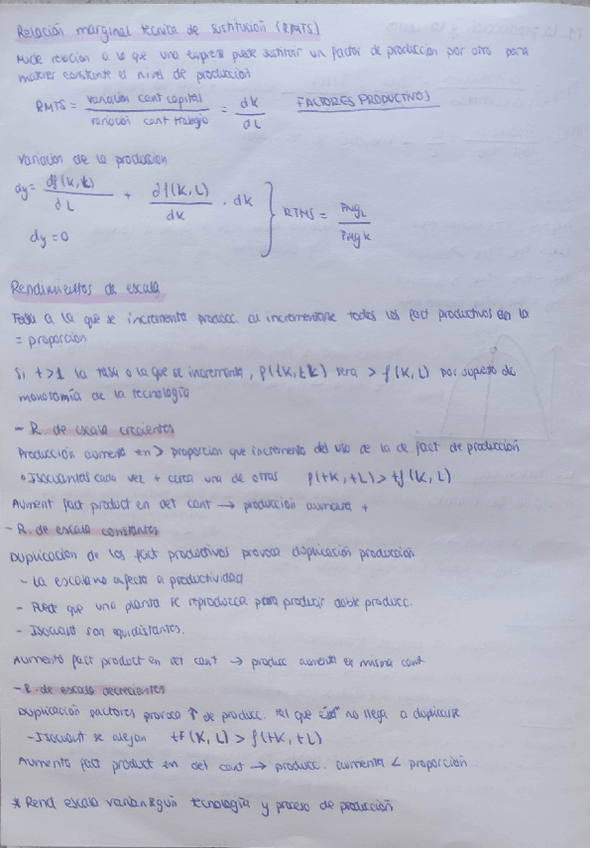 Relación marginal técnica de sustitución (RMTS)
Mide relación a la que una empresa puede sustituir un factor de producción por otro para
mantener constante el nivel de producción
RMTS = variación cant capital / variación cant trabajo = dK / dL FACTORES PRODUCTIVOS
Variación de la producción
dy = df(K, L) / dL + df(K, L) / dK . dK } RTMS = PMgL / PMgK
dy = 0
Rendimientos de escala
Tasa a la que se incrementa producc. al incrementarse todos los fact productivos en la
= proporción
Si t>1 la tasa a la que se incrementa, f(tK, tL) será > f(K, L) por supuesto de
monotomía de la tecnología
- R. de escala crecientes
Producción aumenta en > proporción que incremento del uso de la de fact de producción
• Isocuantas cada vez + cerca una de otras f(tK, tL) > tf(K, L)
Aument fact product en det cant → producción aumenta +
- R. de escala constantes
Duplicación de los fact productivos provoca duplicación producción
- La escala no afecta a productividad
- Puede que una planta se reproduzca para producir doble producc.
- Isocuant son equidistantes.
Aumento fact product en det cant → produc aumenta en misma cant
- R. de escala decrecientes
Duplicación factores provoca ↑ de producc. tal que no llega a duplicarse
- Isocuant se alejan tf(K, L) > f(tK, tL)
Aumento fact product en det cant → producc. aumenta < proporción
* Rend escala varían según tecnología y proceso de producción